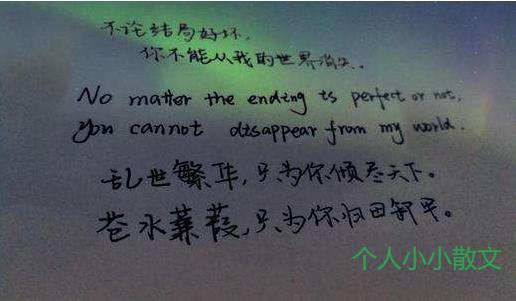 不论结局好坏，
你不能从我的世界消失。
No matter the ending is perfect or not,
you cannot disappear from my world.
乱世繁华，只为你倾尽天下。
苍水蒹葭，只为你归田卸甲。
个人小小散文